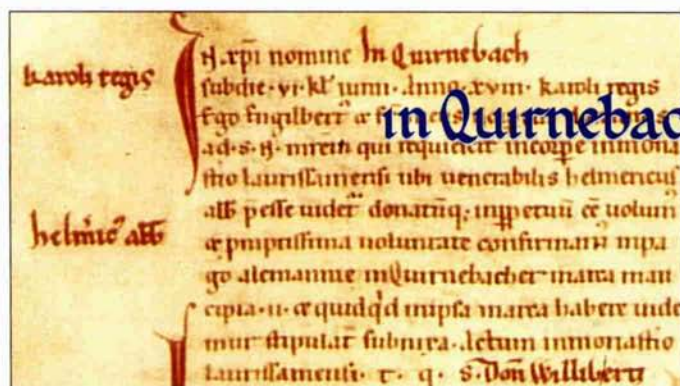 karoli regis
In xp̄i nomine In Quirnebach
sub die · vi · kl̄ iunii · Anno · xviii · karoli regis
Ego Engilbert' &
in Quirnebac
ad · s · N · mr̄em qui requiescit in corpore in mona
sterio laurissamensi ubi venerabilis helmericus
helm̄ic' abb
abb p̄esse uidet' donatūq; inp̄petuū eē uolum'
& promptissima uoluntate confirmam' in pa
go alemannie inQuirnebacher marca man
cipia · ii · & quidq'd in ipsa marca habere uide
mur stipulat' subnixa · Actum in monast'io
laurissamensi · t · q · s · Don̄ Williberti